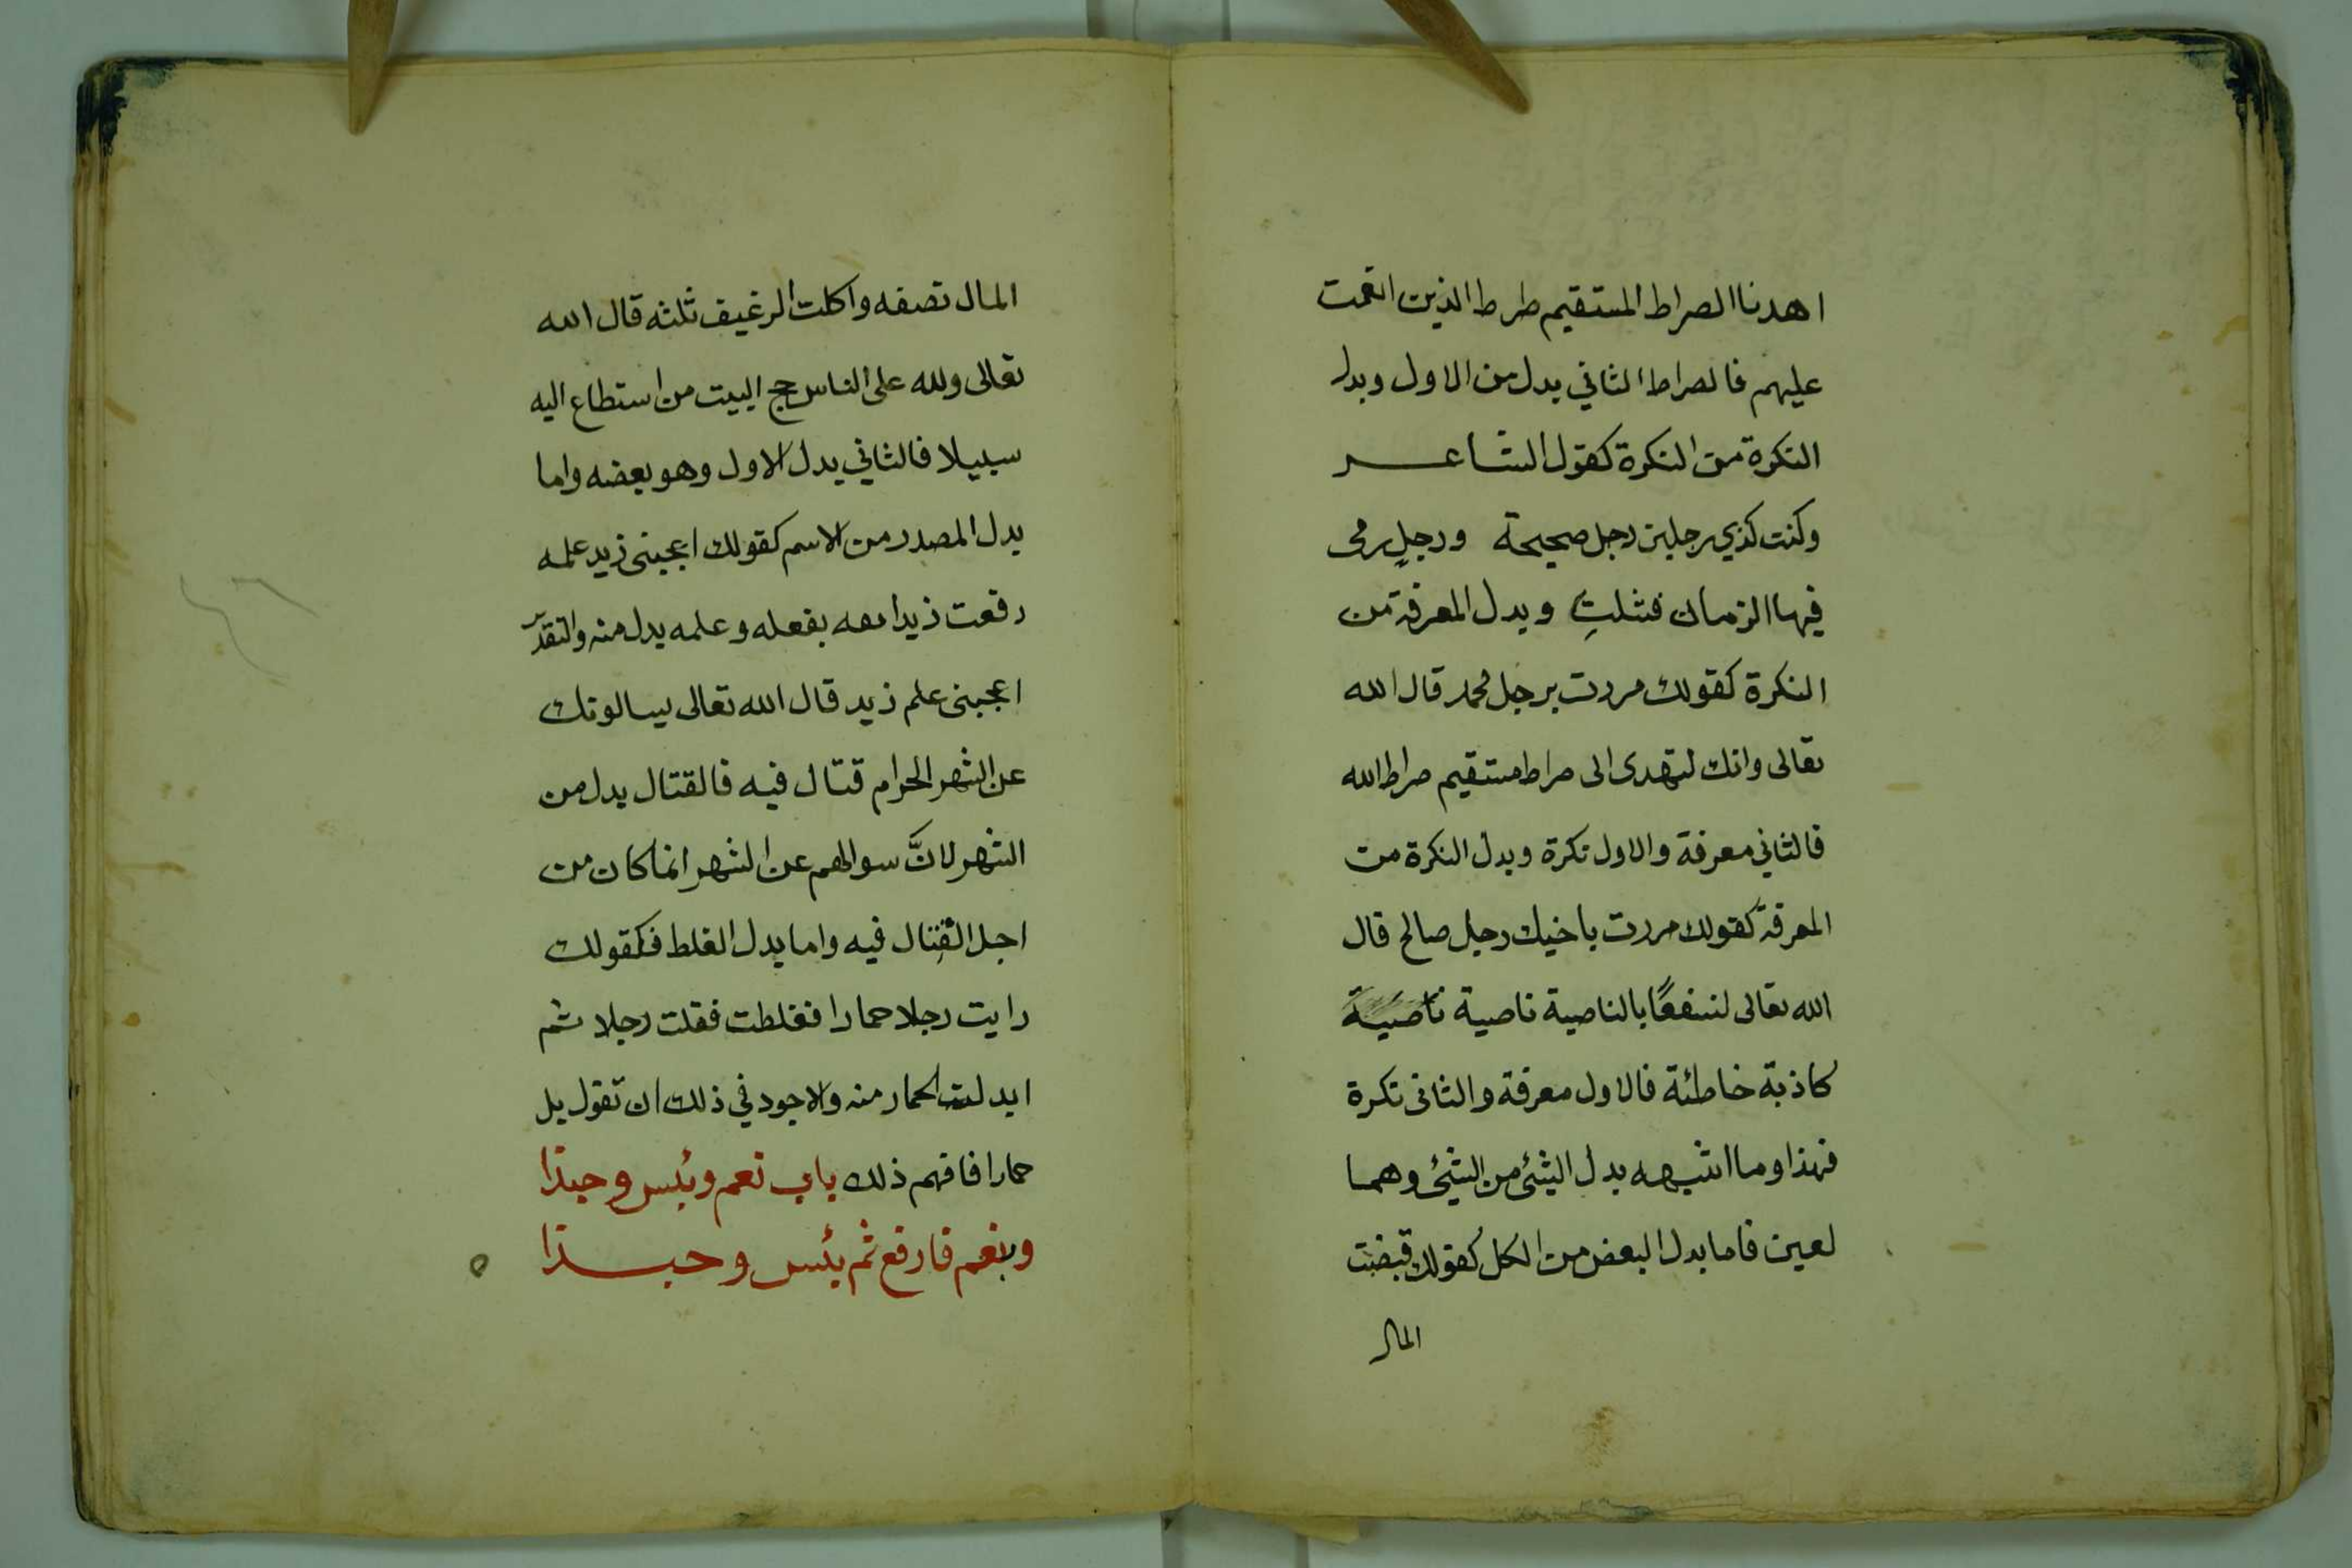 اهدنا الصراط المستقيم صرط الذين انعمت
عليهم فالصراط الثاني بدل من الاول وبدل
النكرة من النكرة كقول الشاعر
وكنت كذي رجلين رجل صحيحة ورجلٍ رمى
فيها الزمان فشلتِ وبدل المعرفة من
النكرة كقولك مررت برجل محمد قال الله
تعالى وانك لتهدى الى صراط مستقيم صراط الله
فالثاني معرفة والاول نكرة وبدل النكرة من
المعرفة كقولك مررت باخيك رجل صالح قال
الله تعالى لنسفعًا بالناصية ناصية ناصية
كاذبة خاطئة فالاول معرفة والثانى نكرة
فهذا وما اشبهه بدل الشئ من الشئ وهما
لعين فاما بدل البعض من الكل كقولك قبضت
المال
المال نصفه واكلت الرغيف ثلثه قال الله
تعالى ولله على الناس حج البيت من استطاع اليه
سبيلا فالثاني بدل الاول وهو بعضه واما
بدل المصدر من الاسم كقولك اعجبنى زيد علمه
رفعت زيدا معه بفعله وعلمه بدل منه والتقدير
اعجبنى علم زيد قال الله تعالى يسالونك
عن الشهر الحرام قتال فيه فالقتال بدل من
الشهر لانَّ سوالهم عن الشهر انما كان من
اجل القتال فيه واما بدل الغلط فكقولك
رايت رجلا حمارا فغلطت فقلت رجلا ثم
ابدلت الحمار منه والاجود في ذلك ان تقول بل
حمارا فافهم ذلك باب نعم وبئس وحبذا
وبنعم فارفع ثم بئس وحبذا